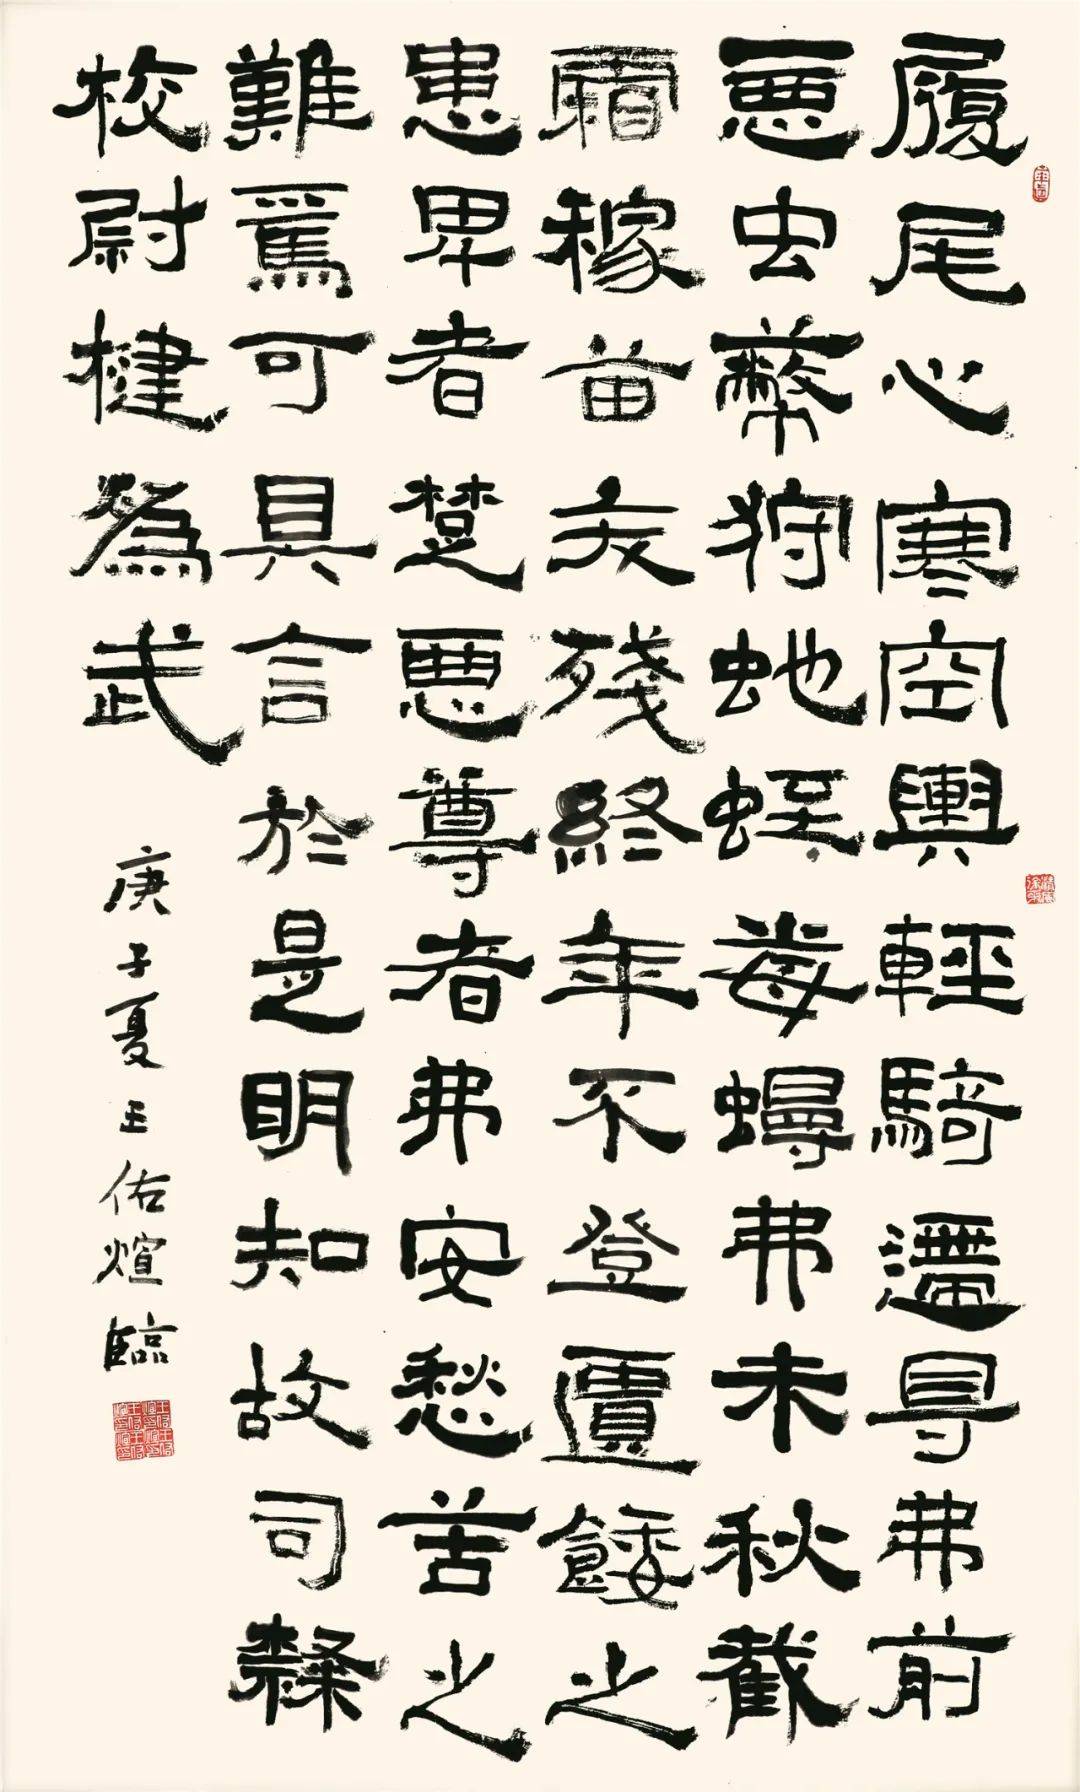 履尾心寒空輿輕騎遰㝵弗前
悪虫蔽狩虵蛭毒蟃弗未秋截
霜稼苗夭殘終年不登匱餧之
患卑者楚悪尊者弗安愁苦之
難焉可具言於是明知故司隸
校尉楗為武
庚子夏王佑煊臨